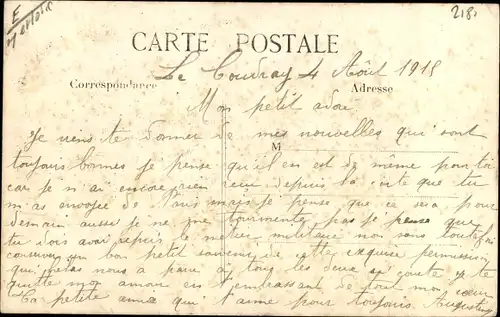 E
218
CARTE POSTALE
Le Coudray 4 Août 1915
Correspondance
Adresse
Mon petit adoré
M
Je viens te donner de mes nouvelles qui sont
toujours bonnes je pense qu'il en est de même pour toi
car je n'ai encore rien reçu depuis la carte que tu
m'as envoyée de Paris mais je pense que ce sera pour
demain aussi je ne me tourmente pas je pense que
tu dois avoir repris le métier militaire non sans toutefois
conserver un bon petit souvenir de cette exquise permission
qui nous a paru à tous les deux si courte je te
quitte mon amour en t'embrassant de tout mon cœur
Ta petite amie qui t'aime pour toujours. Augustine